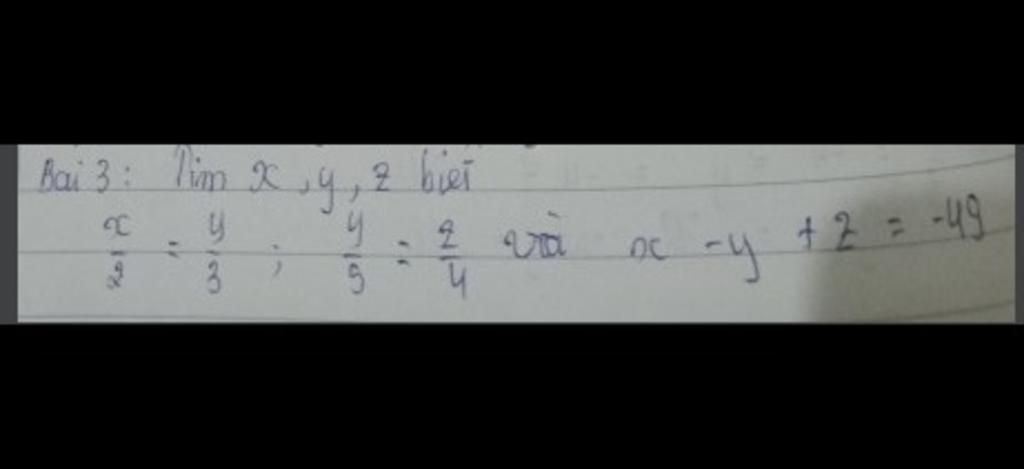 Bài 3: Tìm x, y, z biết
x/2 = y/3 ; y/5 = z/4 và x - y + z = -49